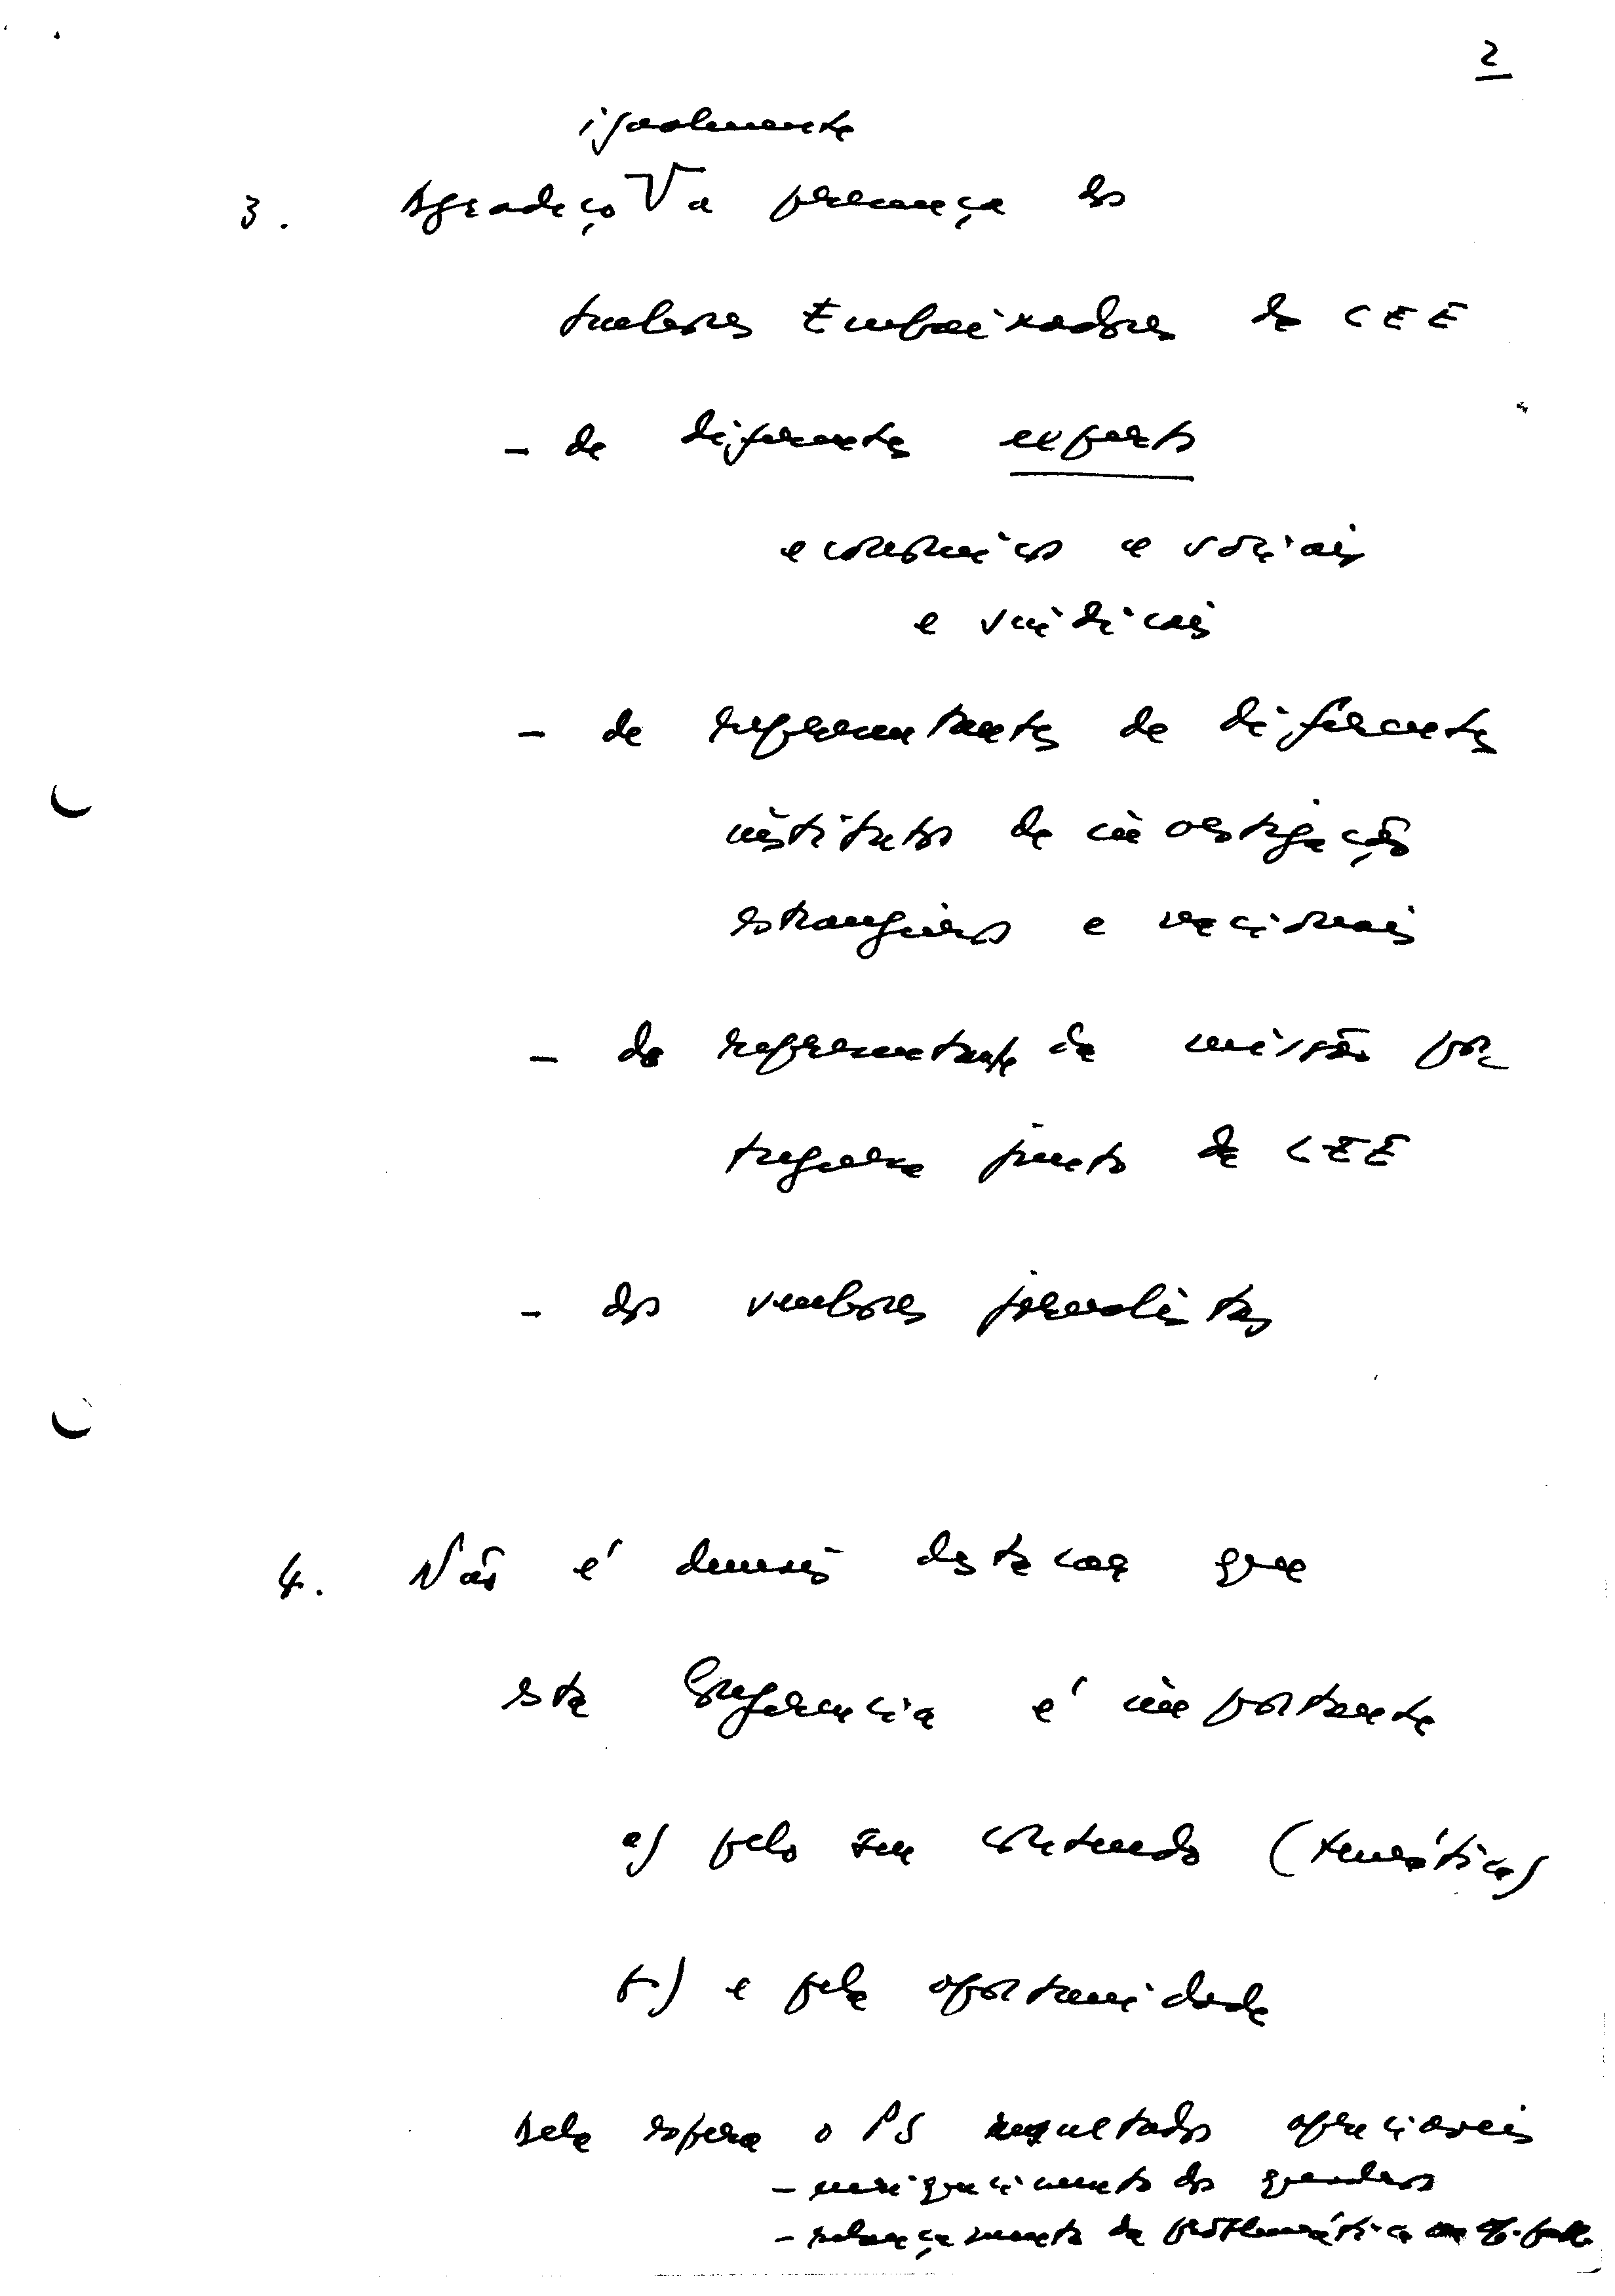 2
igualmente
3. Agradeço V a presença dos
senhores Embaixadores da CEE
- de diferentes experts
económicos e sociais
e sindicais
- de representantes de diferentes
institutos de investigação
estrangeiros e nacionais
- do representante da missão por-
tuguesa junto da CEE
- dos senhores jornalistas
4. Não é demais destacar que
esta Conferência é importante
a) pelo seu conteúdo (temática)
b) e pela oportunidade
Dela espera o PS resultados apreciáveis
- enriquecimento dos quadros
- relançamento da problemática